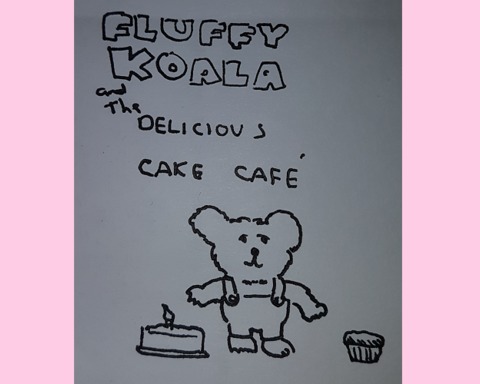 FLUFFY
KOALA
and
The
DELICIOUS
CAKE CAFÉ